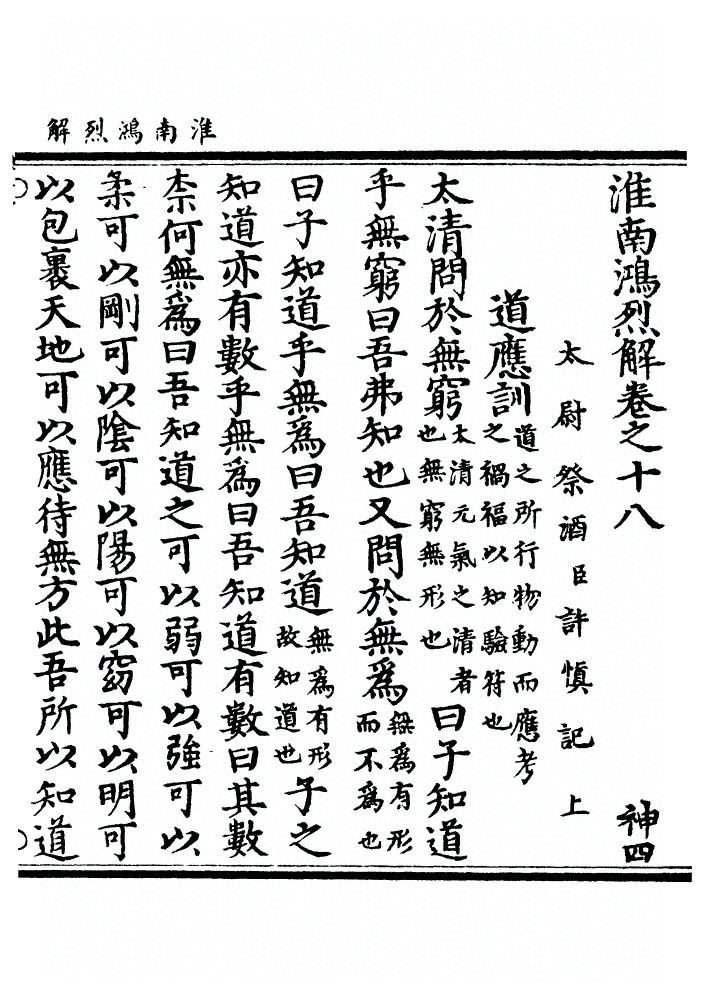 淮南鴻烈解
淮南鴻烈解卷之十八 神四
太尉祭酒臣許慎記上
道應訓 道之所行物動而應考之禍福以知驗符也
太清問於無窮 太清元氣之清者也無窮無形也 曰子知道
乎無窮曰吾弗知也又問於無爲 無爲有形而不爲也
曰子知道乎無爲曰吾知道 無爲有形故知道也 子之
知道亦有數乎無爲曰吾知道有數曰其數
柰何無爲曰吾知道之可以弱可以強可以
柔可以剛可以陰可以陽可以窈可以明可
以包裹天地可以應待無方此吾所以知道